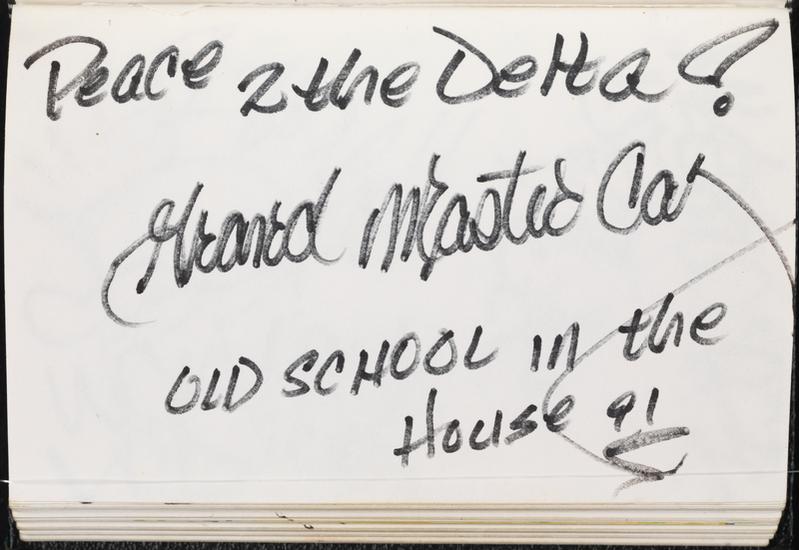 Peace 2 the Delta!
Grand Master Caz
OLD SCHOOL in the
House 91